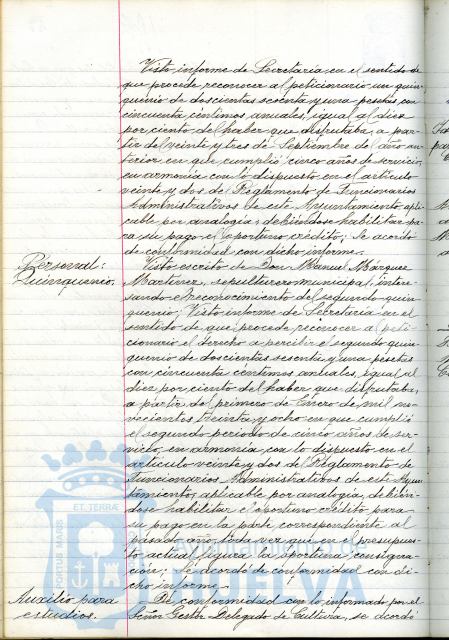 Visto informe de Secretaría, en el sentido de
que procede reconocer al peticionario un quin-
quenio de doscientas sesenta y una pesetas con
cincuenta céntimos, anuales, igual al diez
por ciento del haber que disfrutaba, a par-
tir del veinte y tres de Septiembre del año an-
terior en que cumplió cinco años de servicio,
en armonía con lo dispuesto en el artículo
veinte y dos del Reglamento de Funcionarios
Administrativos de este Ayuntamiento apli-
cable por analogía, debiéndose habilitar pa-
ra su pago el oportuno crédito; Se acordó
de conformidad con dicho informe.
Personal:
Quinquenio.
Visto escrito de Don Manuel Márquez
Martínez, sepulturero municipal, intere-
sando el reconocimiento del segundo quin-
quenio; Visto informe de Secretaría en el
sentido de que procede reconocer al peti-
cionario el derecho a percibir el segundo quin-
quenio de doscientas sesenta y una pesetas
con cincuenta céntimos anuales, igual al
diez por ciento del haber que disfrutaba,
a partir del primero de Enero de mil no-
vecientos treinta y ocho en que cumplió
el segundo periodo de cinco años de ser-
vicio, en armonía con lo dispuesto en el
artículo veinte y dos del Reglamento de
Funcionarios Administrativos de este Ayun-
tamiento, aplicable por analogía, debién-
dose habilitar el oportuno crédito para
su pago en la parte correspondiente al
pasado año, toda vez que en el presupues-
to actual figura la oportuna consigna-
ción; Se acordó de conformidad con di-
cho informe.
Auxilio para
estudios.
De conformidad con lo informado por el
Señor Gestor Delegado de Cultura, se acordó
PORTUS MARIS
ET TERRÆ
HUELVA